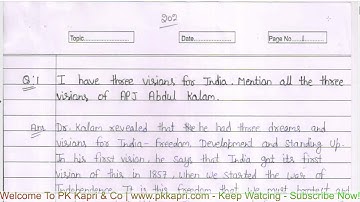 202
Topic
Date
Page No 1
Q:1 I have three visions for India. Mention all the three
visions of APJ Abdul Kalam.
Ans Dr. Kalam revealed that the he had three dreams and
visions for India- freedom, Development and Standing Up.
In his first vision, he says that India got its first
vision of this in 1857, when we started the war of
Independence. It is this freedom that we must protect and
Welcome To PK Kapri & Co | www.pkkapri.com - Keep Watcing - Subscribe Now